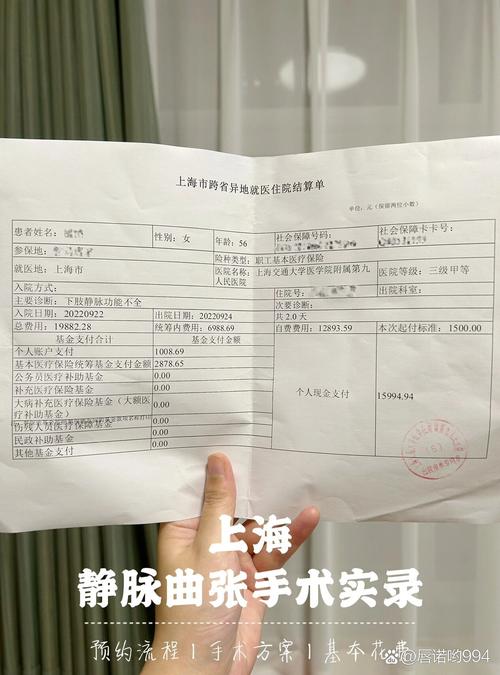 上海市跨省异地就医住院结算单
单位：元（保留两位小数）
患者姓名：
性别：女
年龄：56
社会保障号码：
社会保障卡卡号：
参保地：
险种类型：职工基本医疗保险
就医地：上海市
医院名称：上海交通大学医学院附属第九人民医院
医院等级：三级甲等
入院方式：
住院号：
出院科室：
主要诊断：下肢静脉功能不全
次要诊断：
入院日期：20220922
出院日期：20220924
共 2.0天
总费用：19882.28
统筹内费用：6988.69
自费费用：12893.59
本次起付标准：1500.00
基金支付合计
基金支付金额
个人账户支付
1008.69
基本医疗保险统筹基金支付金额
2878.65
公务员医疗补助基金
0.00
补充医疗保险基金
0.00
大病补充医疗保险基金（大额医疗补助基金）
0.00
伤残人员医疗保障基金
0.00
民政补助基金
0.00
其他基金支付
个人现金支付
15994.94
上海
静脉曲张手术实录
预约流程 | 手术方案 | 基本花费
@唇诺哟994